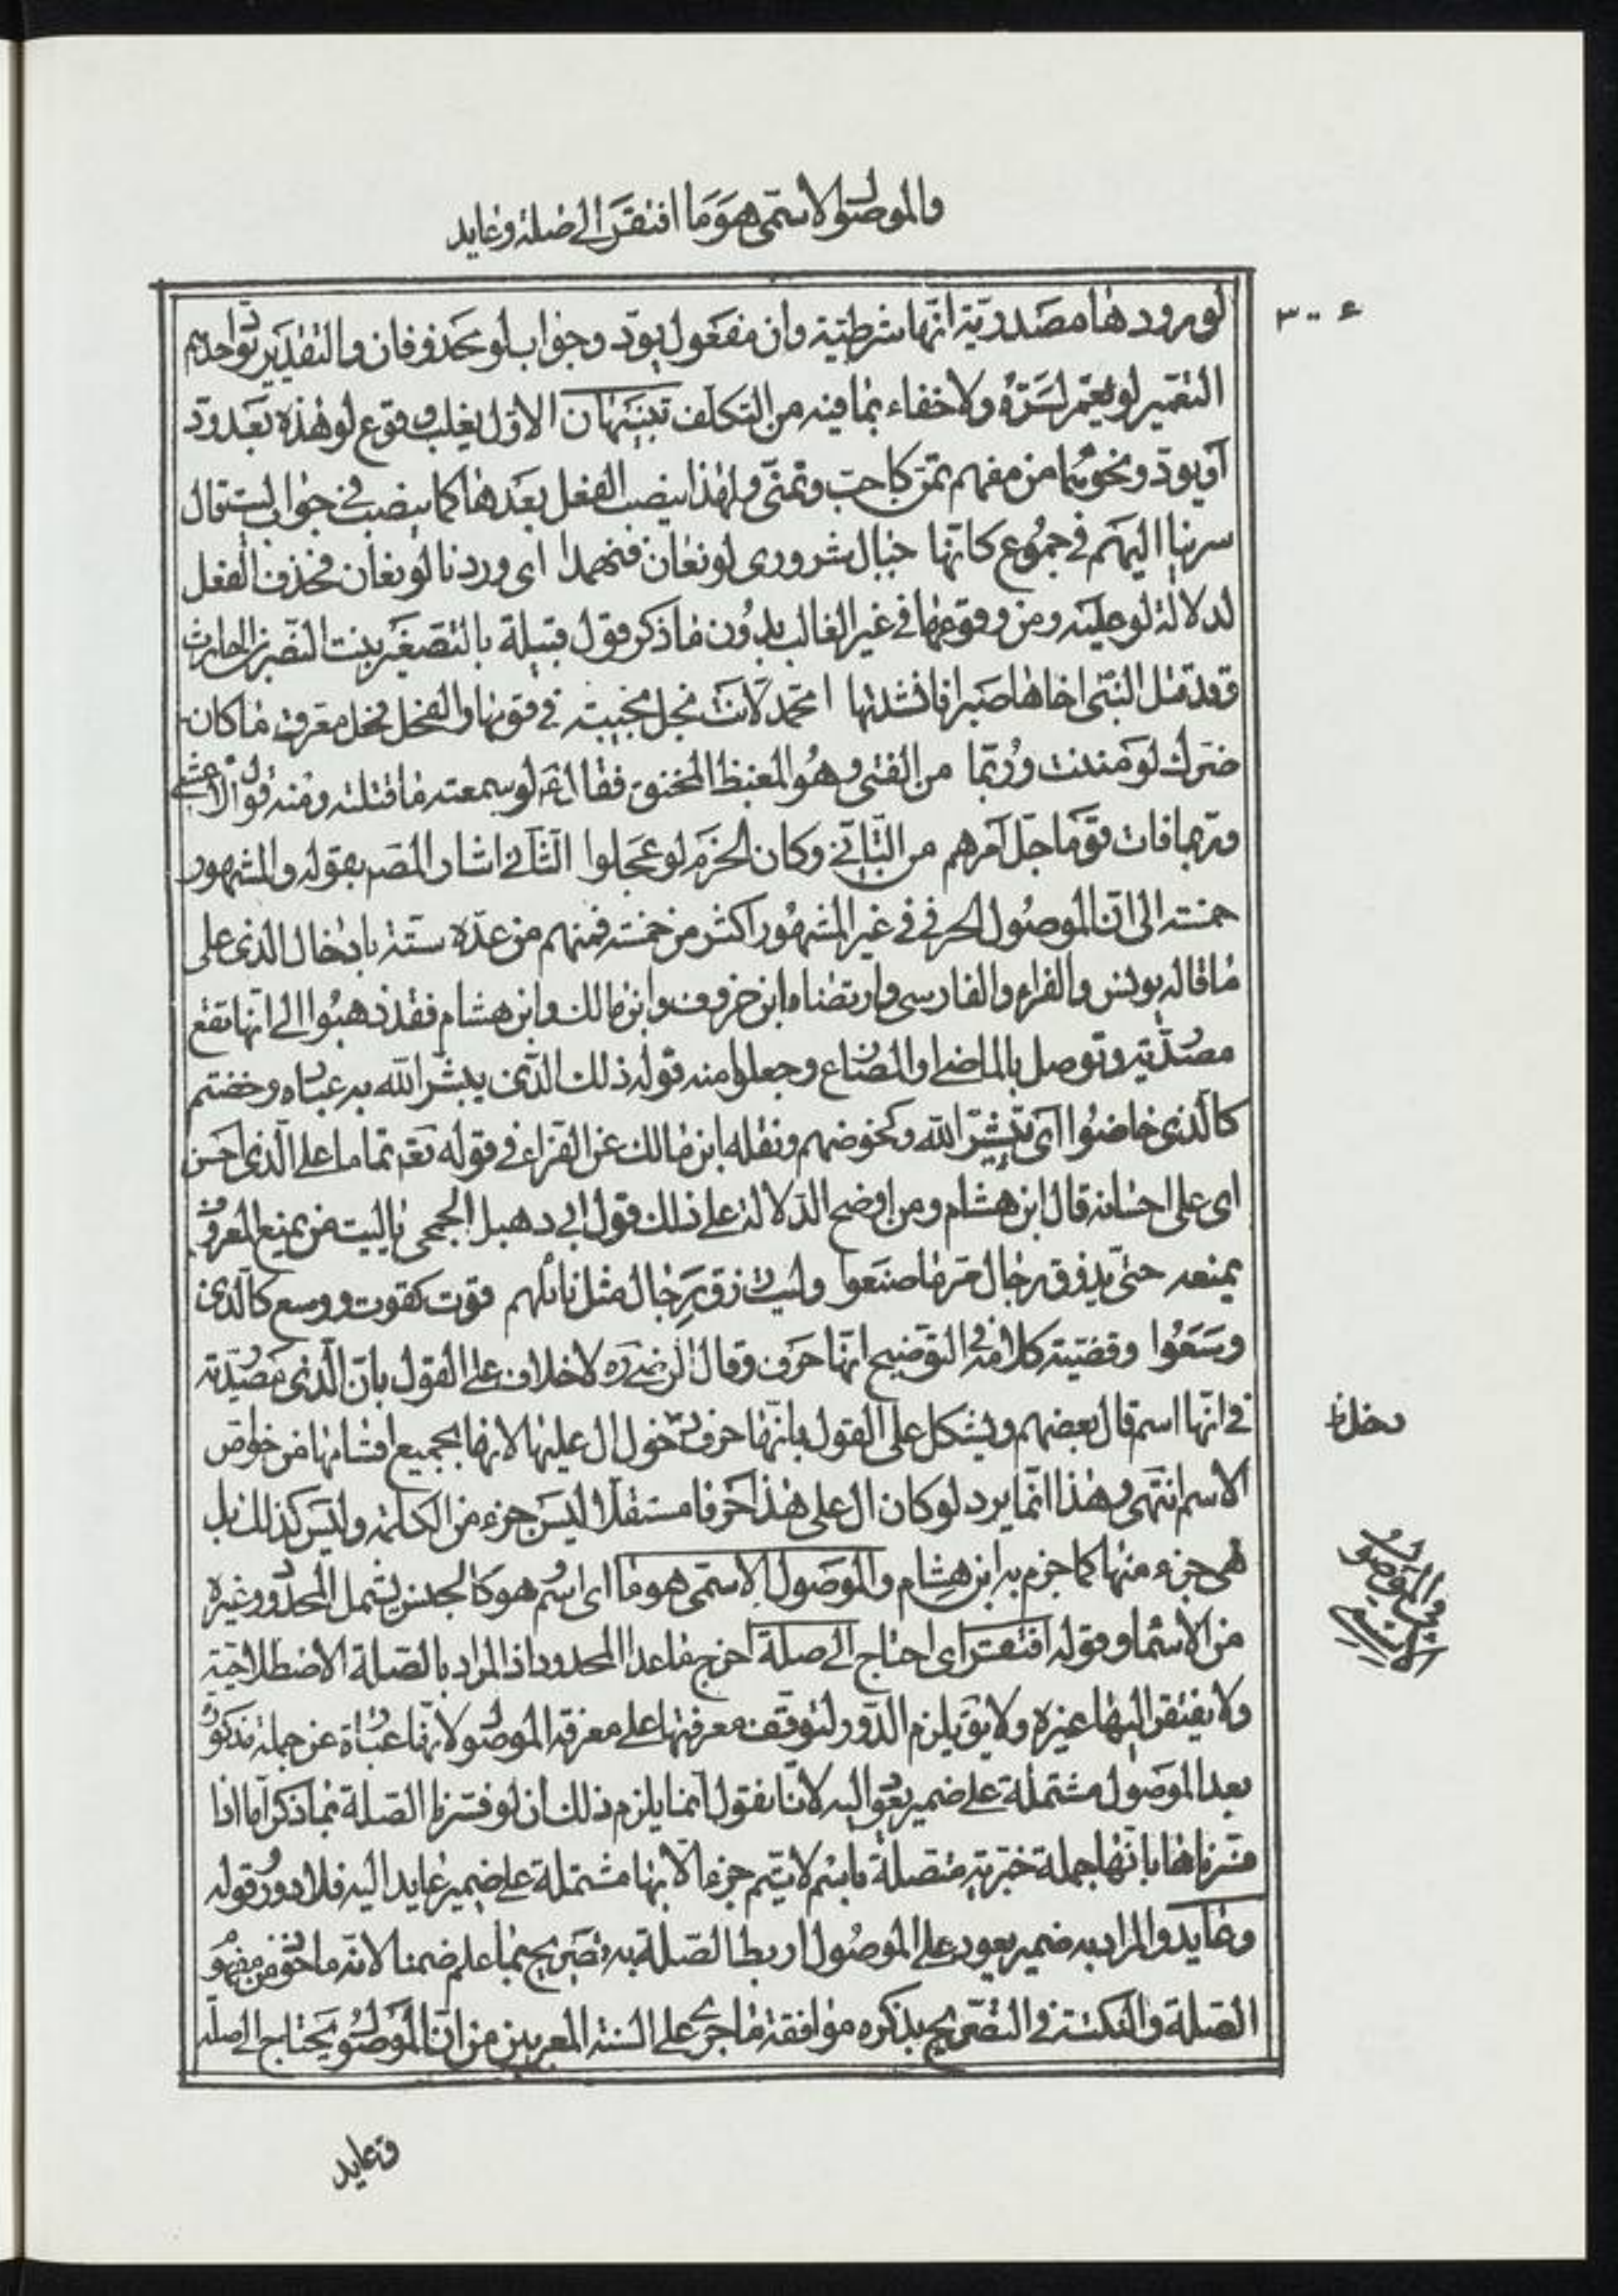 والموصول الاسمي هو ما افتقر الى صلة وعايد
٣٠٠٤
لورودها مصدرية انها شرطية وان مفعول يود وجواب لو محذوفان والتقدير يود احدهم
التعمير لو يعمر لسره ولا خفاء بما فيه من التكلف تنبيهان الاول يغلب وقوع لو هذه بعد ود
او يود ونحوهما من مفهم تمن كاحب وتمنى ولهذا ينصب الفعل بعدها كما ينصب في جواب ليت قال
سرينا اليهم في جموع كانها جبال شرورى لو نعان فننهدا اى وددنا لو نعان فحذف الفعل
لدلالة لو عليه ومن وقوعها في غير الغالب بدون ما ذكر قول قتيلة بالتصغير بنت النضر بن الحارث
وقد قتل النبي اخاها صبرا فانشدتها امحمد لانت نجل نجيبة في قومها والفحل فحل معرق ما كان
ضرك لو مننت وربما من الفتى وهو المغيظ المحنق فقال لو سمعته ما قتلته ومنه قول الاعشى
وربما فات قوما جل امرهم من التاني وكان الحزم لو عجلوا الثاني اشار المصـ بقوله والمشهور
خمسة الى ان الموصول الحرفي في غير المشهور اكثر من خمسة فمنهم من عده ستة بادخال الذى على
ما قاله يونس والفراء والفارسى وارتضاه ابن خروف وابن مالك وابن هشام فقد ذهبوا الى انها تقع
مصدرية وتوصل بالماضى والمضارع وجعلوا منه قوله ذلك الذى يبشر الله به عباده وخضتم
كالذى خاضوا اى تبشير الله وكخوضهم ونقله ابن مالك عن الفراء في قوله تعـ تماما على الذى احسن
اى على احسانه قال ابن هشام ومن اوضح الدلالة على ذلك قول ابي دهبل الجمحى يا ليت من يمنع المعروف
يمنعه حتى يذوق رجال مر ما صنعوا وليت رزق رجال مثل نائلهم قوت كقوت ووسع كالذى
وسعوا وقضية كلامه في التوضيح انها حرف وقال الرضى ره لا خلاف على القول بان الذى مصدرية
في انها اسم قال بعضهم ويشكل على القول بانها حرف دخول ال عليها لانها بجميع اقسامها من خواص
الاسم انتهى وهذا انما يرد لو كان ال على هذا حرفا مستقلا ليس جزء من الكلمة وليس كذلك بل
هى جزء منها كما جزم به ابن هشام والموصول الاسمى هو ما اى اسم هو كالجنس يشمل المحدود وغيره
من الاسماء وقوله افتقر اى احتاج الى صلة اخرج ماعدا المحدود اذ المراد بالصلة الاصطلاحية
ولا يفتقر اليها غيره ولا يق يلزم الدور لتوقف معرفتها على معرفة الموصول لانها عبارة عن جملة مذكورة
بعد الموصول مشتملة على ضمير يعود اليه لانا نقول انما يلزم ذلك ان لو فسرنا الصلة بما ذكر اما اذا
فسرناها بانها جملة خبرية متصلة باسم لا يتم جزءا الا بها مشتملة على ضمير عايد اليه فلا دور وقوله
وعايد والمراد به ضمير يعود على الموصول لربط الصلة به تصريح بما علم ضمنا لانه ماخوذ من مفهوم
الصلة والنكتة في التصريح بذكره موافقة ما جرى على السنة المعربين من ان الموصول يحتاج الى صلة
في الموصول الاسمي
وعايد